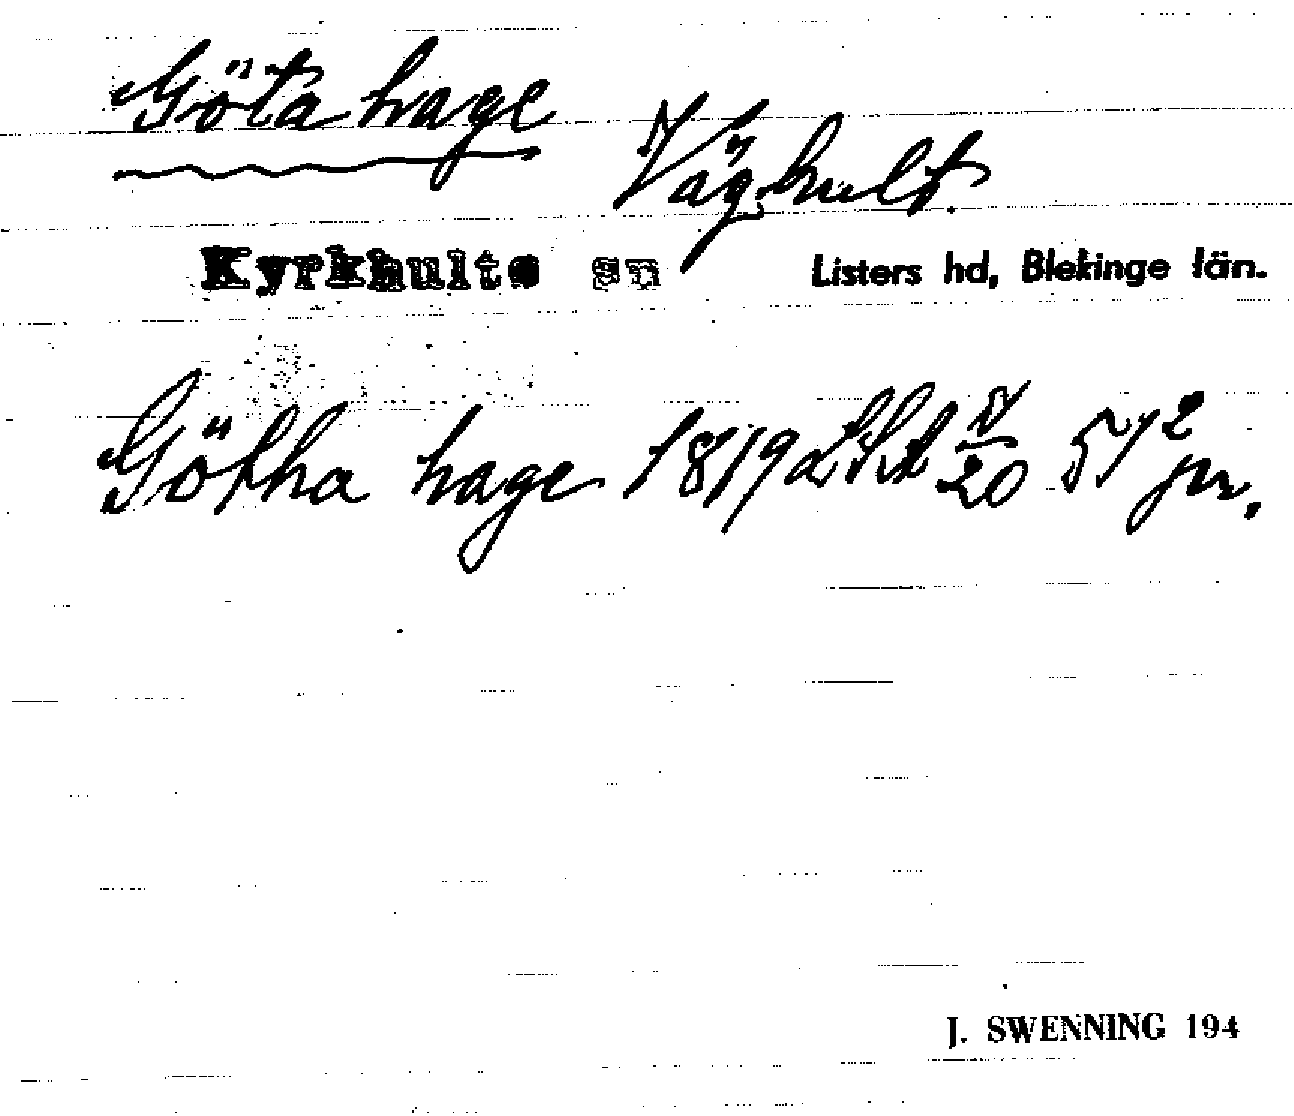 Göta hage
Väghult.
Kyrkhults sn Listers hd, Blekinge län.
Götha hage 1819 20 51 2 pr.
J. SWENNING 194